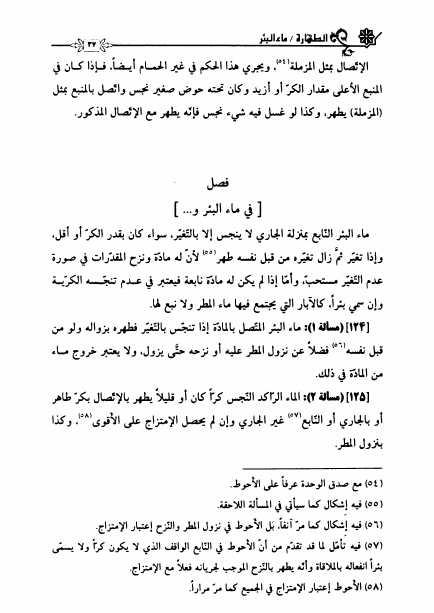 الطهارة / ماء البئر
٣٧
الإتصال بمثل المزملة(٥٤)، ويجري هذا الحكم في غير الحمام أيضاً، فإذا كان في
المنبع الأعلى مقدار الكرّ أو أزيد وكان تحته حوض صغير نجس واتصل بالمنبع بمثل
(المزملة) يطهر، وكذا لو غسل فيه شيء نجس فإنه يطهر مع الإتصال المذكور.
فصل
[ في ماء البئر و... ]
ماء البئر النّابع بمنزلة الجاري لا ينجس إلا بالتغيّر، سواء كان بقدر الكرّ أو أقل،
وإذا تغير ثمّ زال تغيّره من قبل نفسه طهر(٥٥) لأنّ له مادّة ونزح المقدّرات في صورة
عدم التغيّر مستحبّ، وأمّا إذا لم يكن له مادّة نابعة فيعتبر في عدم تنجّسه الكريّة
وإن سمي بئراً، كالآبار التي يجتمع فيها ماء المطر ولا نبع لها.
[١٢٤] (مسألة ١): ماء البئر المتّصل بالمادّة إذا تنجّس بالتغيّر فطهره بزواله ولو من
قبل نفسه(٥٦) فضلاً عن نزول المطر عليه أو نزحه حتّى يزول، ولا يعتبر خروج ماء
من المادّة في ذلك.
[١٢٥] (مسألة ٢): الماء الرّاكد النّجس كراً كان أو قليلاً يطهر بالإتصال بكرّ طاهر
أو بالجاري أو النّابع(٥٧) غير الجاري وإن لم يحصل الإمتزاج على الأقوى(٥٨)، وكذا
بنزول المطر.
(٥٤) مع صدق الوحدة عرفاً على الأحوط.
(٥٥) فيه إشكال كما سيأتي في المسألة اللاحقة.
(٥٦) فيه إشكال كما مرّ آنفاً، بَل الأحوط في نزول المطر والنّزح إعتبار الإمتزاج.
(٥٧) فيه تأمّل لما قد تقدّم من أنّ الأحوط في النّابع الواقف الذي لا يكون كراً ولا يسمّى
بئراً انفعاله بالملاقاة وأنه يطهر بالنّزح الموجب لجريانه فعلاً مع الإمتزاج.
(٥٨) الأحوط إعتبار الإمتزاج في الجميع كما مرّ مراراً.